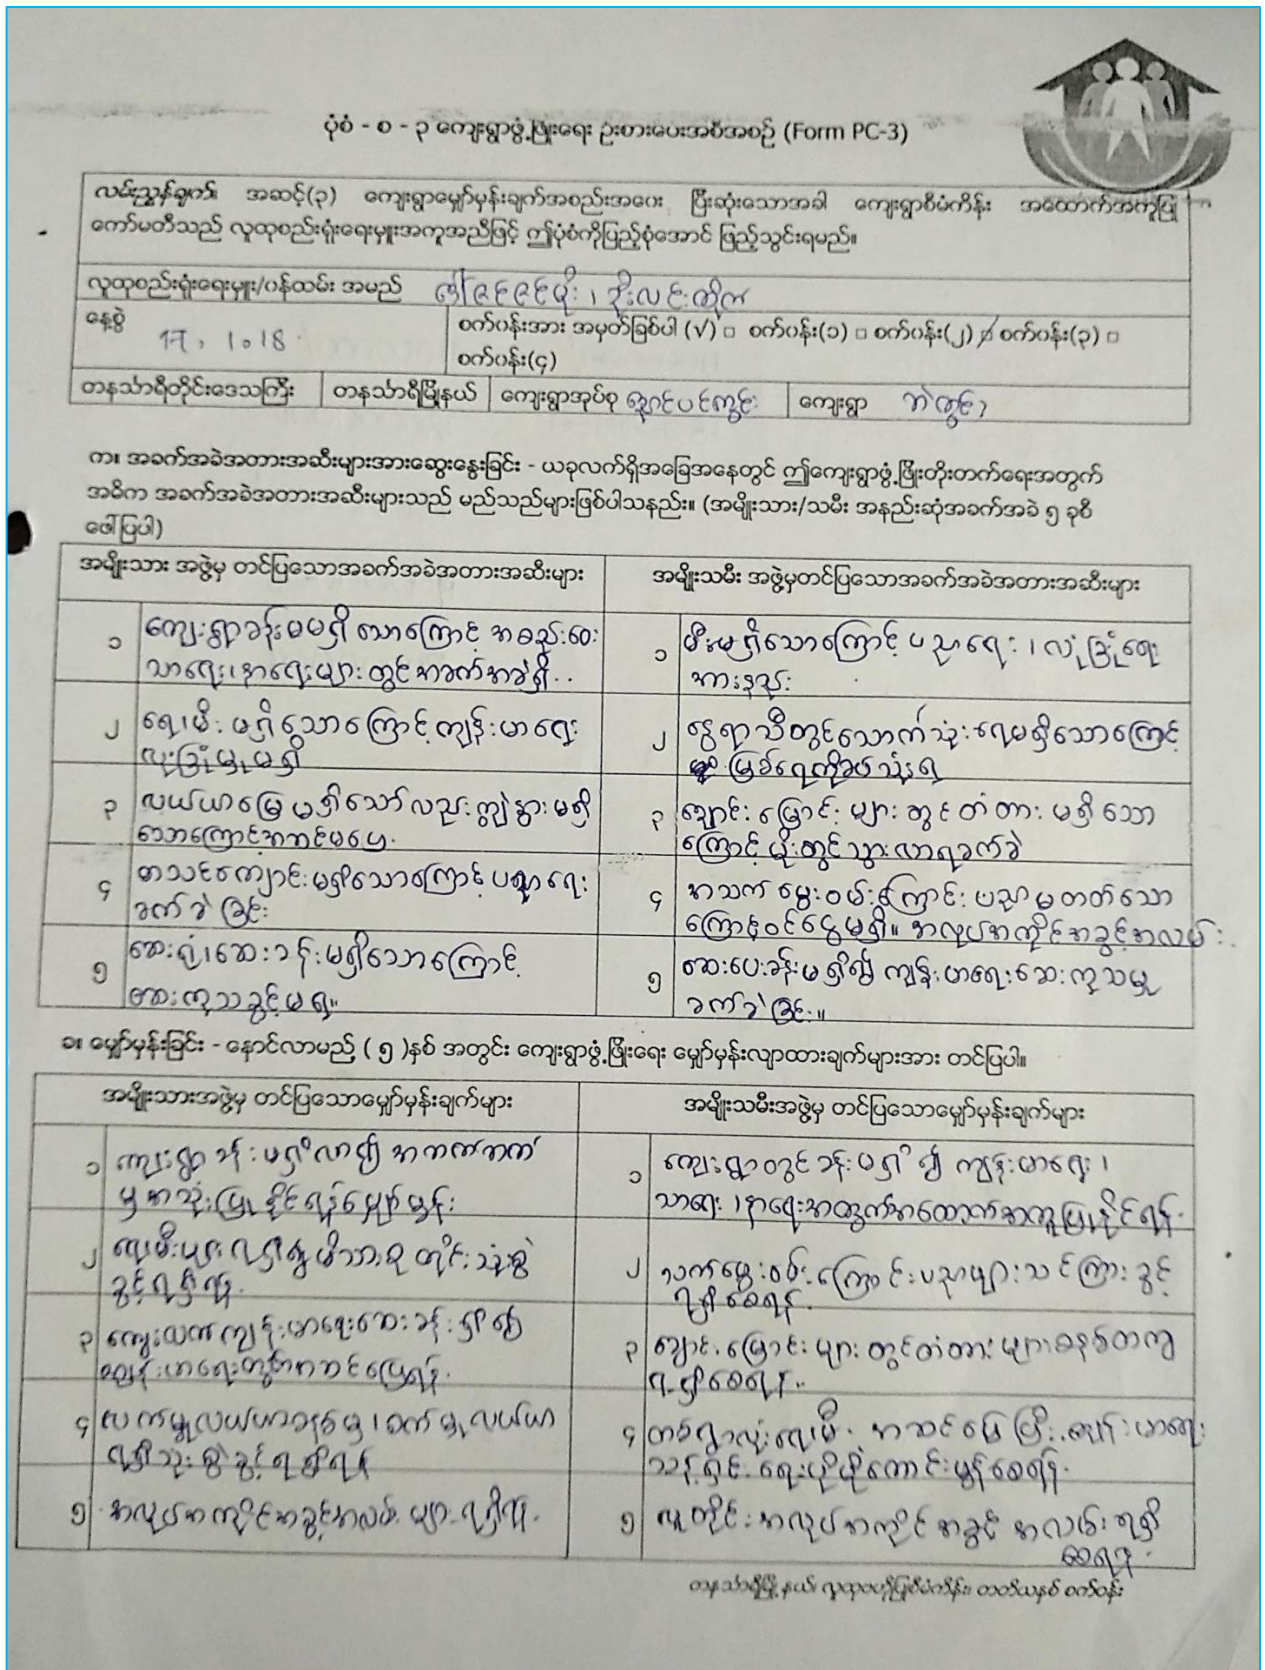 ပုံစံ - စ - ၃ ကျေးရွာဖွံ့ဖြိုးရေး ဦးစားပေးအစီအစဉ် (Form PC-3)
လမ်းညွှန်ချက်၊ အဆင့်(၃) ကျေးရွာမျှော်မှန်းချက်အစည်းအဝေး ပြီးဆုံးသောအခါ ကျေးရွာစီမံကိန်း အထောက်အကူပြု
ကော်မတီသည် လူထုစည်းရုံးရေးမှူးအကူအညီဖြင့် ဤပုံစံကိုပြည့်စုံအောင် ဖြည့်သွင်းရမည်။
လူထုစည်းရုံးရေးမှူး/ဝန်ထမ်း အမည်
နေ့စွဲ 17. 1.18 စက်ဝန်းအား အမှတ်ခြစ်ပါ (√) □ စက်ဝန်း(၁) □ စက်ဝန်း(၂) □ စက်ဝန်း(၃) □
စက်ဝန်း(၄)
တနင်္သာရီတိုင်းဒေသကြီး တနင်္သာရီမြို့နယ် ကျေးရွာအုပ်စု ညောင်ပင်ကွင်း ကျေးရွာ
က။ အခက်အခဲအတားအဆီးများအားဆွေးနွေးခြင်း - ယခုလက်ရှိအခြေအနေတွင် ဤကျေးရွာဖွံ့ဖြိုးတိုးတက်ရေးအတွက်
အဓိက အခက်အခဲအတားအဆီးများသည် မည်သည်များဖြစ်ပါသနည်း။ (အမျိုးသား/သမီး အနည်းဆုံအခက်အခဲ ၅ ခုစီ
ဖေါ်ပြပါ)
အမျိုးသား အဖွဲ့မှ တင်ပြသောအခက်အခဲအတားအဆီးများ
အမျိုးသမီး အဖွဲ့မှတင်ပြသောအခက်အခဲအတားအဆီးများ
၁ ကျေးရွာခန်းမမရှိသောကြောင့် အစည်းဝေး
သာရေး၊နာရေးများတွင်အခက်အခဲရှိ..
၁ မီးမရှိသောကြောင့် ပညာရေး၊လုံခြုံရေး
အားနည်း
၂ ရေ၊မီး မရှိသောကြောင့် ကျန်းမာရေး
လုံခြုံမှုမရှိ
၂ နွေရာသီတွင်သောက်သုံးရေမရှိသောကြောင့်
မြစ်ရေကိုခပ်သုံးရ
၃ လယ်ယာမြေမရှိသော်လည်း ကျွဲနွားမရှိ
သောကြောင့်အဆင်မပြေ.
၃ ချောင်းမြောင်းများတွင်တံတားမရှိသော
ကြောင့် မိုးတွင်သွားလာရခက်ခဲ
၄ စာသင်ကျောင်းမရှိသောကြောင့် ပညာရေး
ခက်ခဲခြင်း
၄ အသက်မွေးဝမ်းကြောင်းပညာမတတ်သော
ကြောင့်ဝင်ငွေမရှိ။ အလုပ်အကိုင်အခွင့်အလမ်း
၅ ဆေးရုံ၊ဆေးခန်းမရှိသောကြောင့်
ဆေးကုသခွင့်မရ။
၅ ဆေးပေးခန်းမရှိ၍ ကျန်းမာရေးဆေးကုသမှု
ခက်ခဲခြင်း။
ခ။ မျှော်မှန်းခြင်း - နောင်လာမည် ( ၅ )နှစ် အတွင်း ကျေးရွာဖွံ့ဖြိုးရေး မျှော်မှန်းလျာထားချက်များအား တင်ပြပါ။
အမျိုးသားအဖွဲ့မှ တင်ပြသောမျှော်မှန်းချက်များ
အမျိုးသမီးအဖွဲ့မှ တင်ပြသောမျှော်မှန်းချက်များ
၁ ကျေးရွာခန်းမရှိလာ၍
အသုံးပြုနိုင်ရန်မျှော်မှန်း
၁ ကျေးရွာတွင်ခန်းမရှိ၍ ကျန်းမာရေး၊
သာရေး၊နာရေးအတွက်အထောက်အကူပြုနိုင်ရန်.
၂ သုံးစွဲ
ခွင့်ရရှိရန်.
၂ သက်မွေးဝမ်းကြောင်းပညာများသင်ကြားခွင့်
ရရှိစေရန်.
၃ ကျေးလက်ကျန်းမာရေးဆေးခန်းရှိ၍
ကျန်းမာရေး
၃ ချောင်းမြောင်းများတွင်တံတားများစနစ်တကျ
ရရှိစေရန်..
၄ လက်မှုလယ်ယာစနစ်မှ၊စက်မှုလယ်ယာ
ရရှိသုံးစွဲခွင့်ရရှိရန်
၄ တစ်ရွာလုံးရေ၊မီး အဆင်ပြေပြီးကျန်းမာရေး
သန့်ရှင်းရေးပိုမိုကောင်းမွန်စေရန်.
၅ အလုပ်အကိုင်အခွင့်အလမ်းများရရှိရန်.
၅ လူတိုင်းအလုပ်အကိုင်အခွင့်အလမ်းရရှိ
စေရန်.
တနင်္သာရီမြို့နယ်၊ လူထုဗဟိုပြုစီမံကိန်း၊ တတိယနှစ် စက်ဝန်း